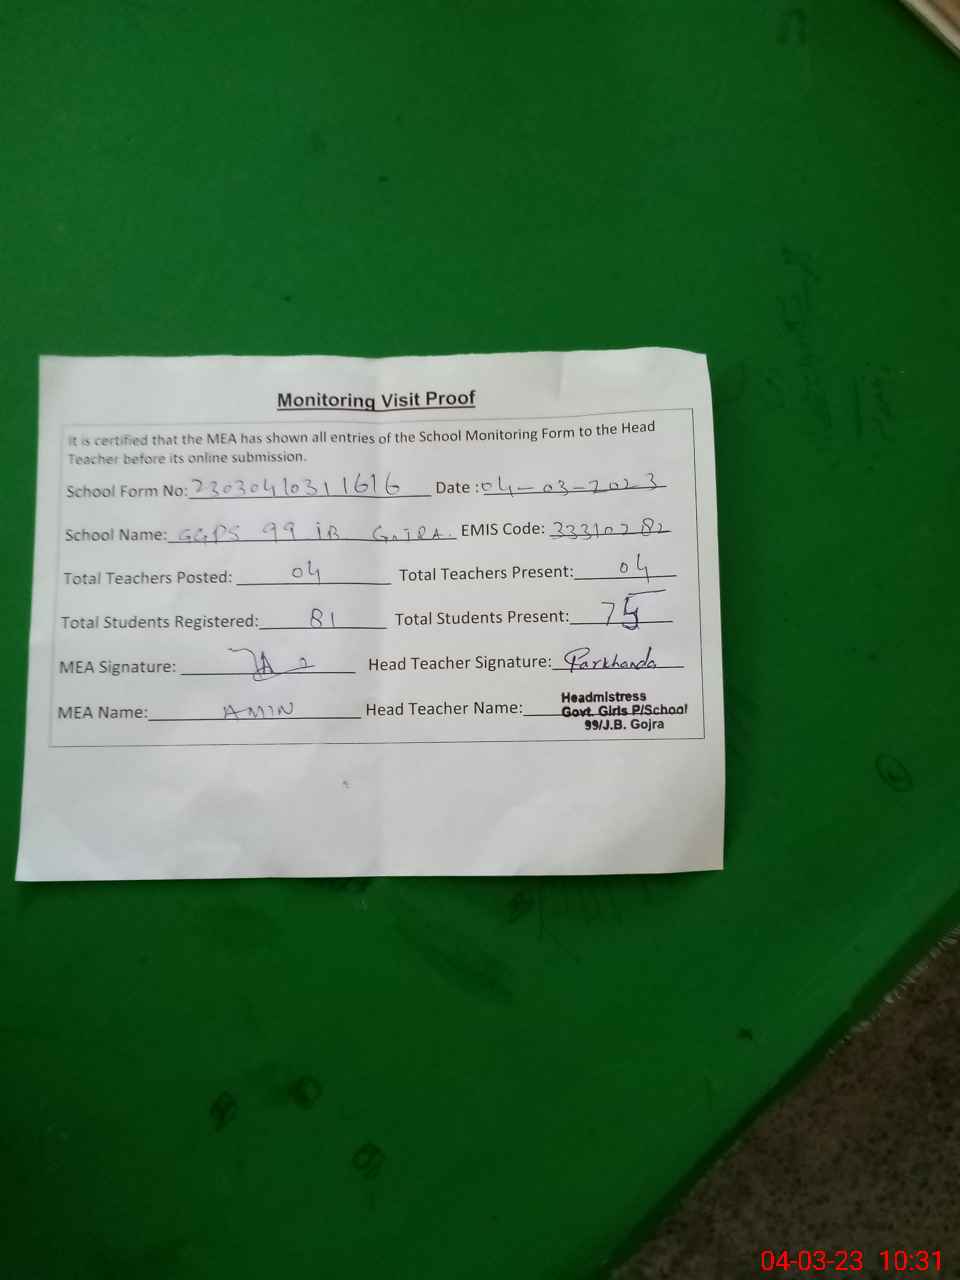 Monitoring Visit Proof
It is certified that the MEA has shown all entries of the School Monitoring Form to the Head
Teacher before its online submission.
School Form No: 2303041031 1616 Date : 04-03-2023
School Name: GGPS 99 JB GOJRA. EMIS Code: 33310282
Total Teachers Posted: 04 Total Teachers Present: 04
Total Students Registered: 81 Total Students Present: 75
MEA Signature: Head Teacher Signature: Farkhanda
MEA Name: AMIN Head Teacher Name: Headmistress
Govt. Girls P/School
99/J.B. Gojra
04-03-23 10:31